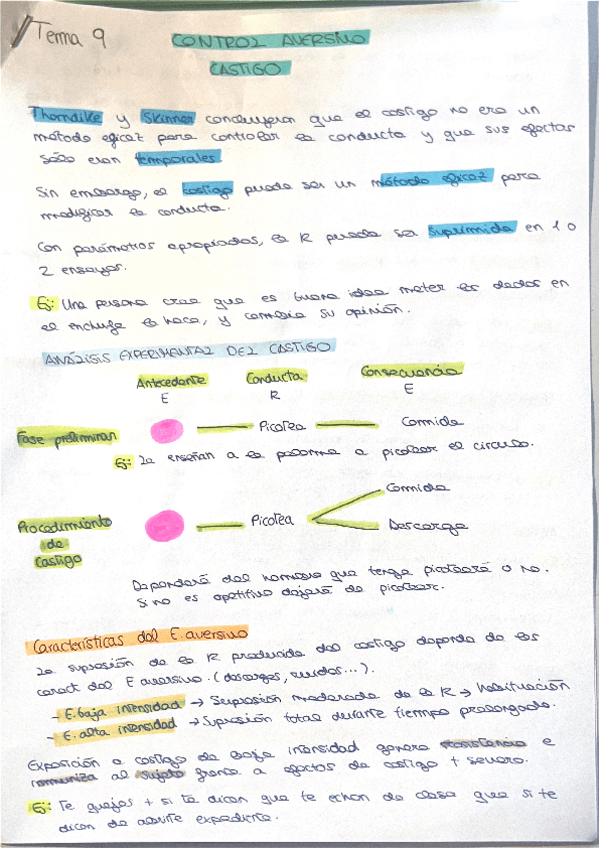 Tema 9
CONTROL AVERSIVO
CASTIGO
Thorndike y Skinner concluyeron que el castigo no era un
método eficaz para controlar la conducta y que sus efectos
sólo eran temporales.
Sin embargo, el castigo puede ser un método eficaz para
modificar la conducta.
Con parámetros apropiados, la R puede ser suprimida en 1 o
2 ensayos.
Ej: Una persona cree que es buena idea meter los dedos en
el enchufe lo hace, y cambia su opinión.
ANÁLISIS EXPERIMENTAL DEL CASTIGO
Antecedente Conducta Consecuencia
E R E
Fase preliminar Picotea Comida
Ej: Le enseñan a la paloma a picotear el círculo.
Comida
Procedimiento Picotea
de Descarga
Castigo
Dependerá del hambre que tenga picoteará o no.
Si no es apetitivo dejará de picotear.
Características del E. aversivo
La supresión de la R producida del castigo depende de las
caract del E aversivo. (descargas, ruidos...).
- E. baja intensidad → Supresión moderada de la R → habituación
- E. alta intensidad → Supresión total durante tiempo prolongado.
Exposición a castigo de baja intensidad genera resistencia e
inmuniza al sujeto frente a efectos de castigo + severo.
Ej: Te quejas + si te dicen que te echan de clase que si te
dicen de abrirte expediente.